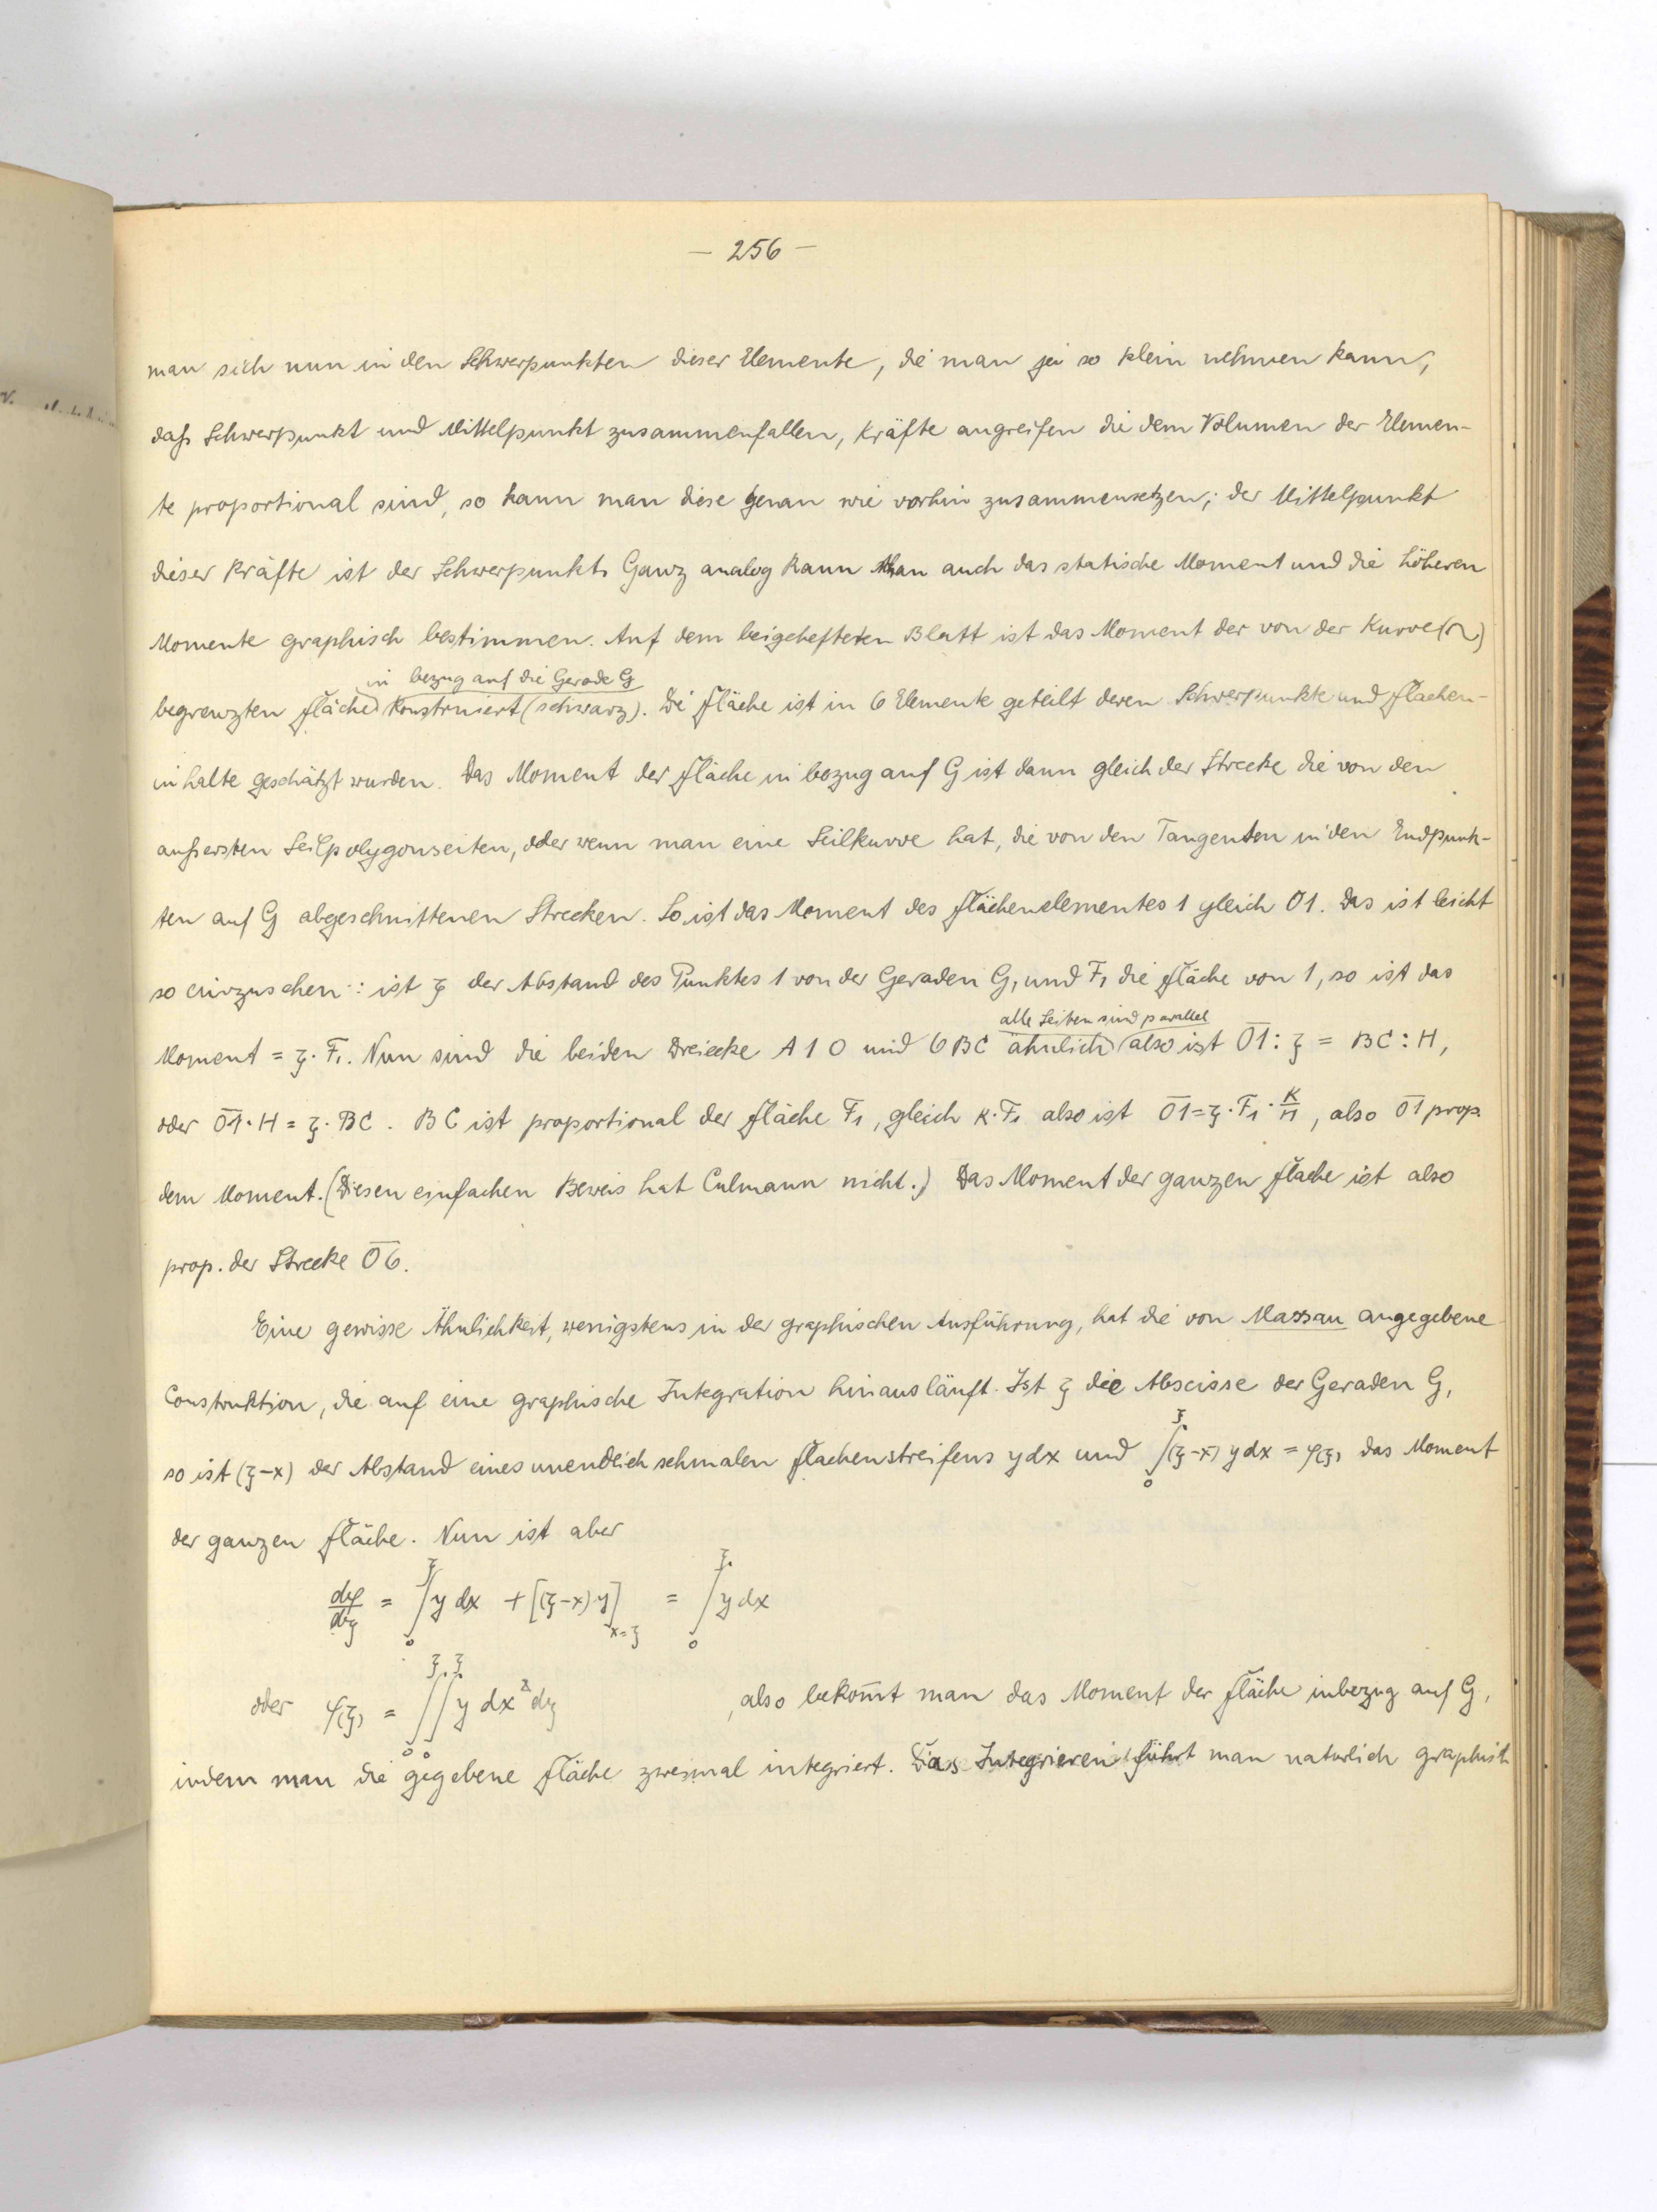 — 256 —
man sich nun in den Schwerpunkten dieser Elemente, die man ja so klein nehmen kann,
daß Schwerpunkt und Mittelpunkt zusammenfallen, Kräfte angreifen die dem Volumen der Elemen-
te proportional sind, so kann man diese genau wie vorhin zusammensetzen; der Mittelpunkt
dieser Kräfte ist der Schwerpunkt. Ganz analog kann man auch das statische Moment und die höheren
Momente graphisch bestimmen. Auf dem beigehefteten Blatt ist das Moment der von der Kurve (∼)
in bezug auf die Gerade G
begrenzten Fläche konstruiert (schwarz). Die Fläche ist in 6 Elemente geteilt deren Schwerpunkte und Flächen-
inhalte geschätzt wurden. Das Moment der Fläche in bezug auf G ist dann gleich der Strecke die von den
äußersten Seilpolygonseiten, oder wenn man eine Seilkurve hat, die von den Tangenten in den Endpunk-
ten auf G abgeschnittenen Strecken. So ist das Moment des Flächenelementes 1 gleich 01. Das ist leicht
so einzusehen: ist ξ der Abstand des Punktes 1 von der Geraden G, und F₁ die Fläche von 1, so ist das
alle Seiten sind parallel
Moment = ξ · F₁. Nun sind die beiden Dreiecke A 1 0 und 6 BC ähnlich also ist 0̅1̅ : ξ = BC : H,
oder 0̅1̅ · H = ξ · BC. BC ist proportional der Fläche F₁, gleich K·F₁ also ist 0̅1̅ = ξ · F₁ · K/H, also 0̅1̅ prop.
dem Moment. (Diesen einfachen Beweis hat Culmann nicht.) Das Moment der ganzen Fläche ist also
prop. der Strecke 0̅6̅.
Eine gewisse Ähnlichkeit, wenigstens in der graphischen Ausführung, hat die von Massau angegebene
Construktion, die auf eine graphische Integration hinausläuft. Ist ξ die Abscisse der Geraden G,
so ist (ξ-x) der Abstand eines unendlich schmalen Flächenstreifens ydx und ∫₀^ξ (ξ-x) ydx = φ(ξ) das Moment
der ganzen Fläche. Nun ist aber
dφ/dξ = ∫₀^ξ y dx + [(ξ-x) y]_{x=ξ} = ∫₀^ξ y dx
oder φ(ξ) = ∫₀^ξ ∫₀^ξ y dx dξ , also bekom̅t man das Moment der Fläche inbezug auf G,
indem man die gegebene Fläche zweimal integriert. Das Integrieren führt man natürlich graphisch